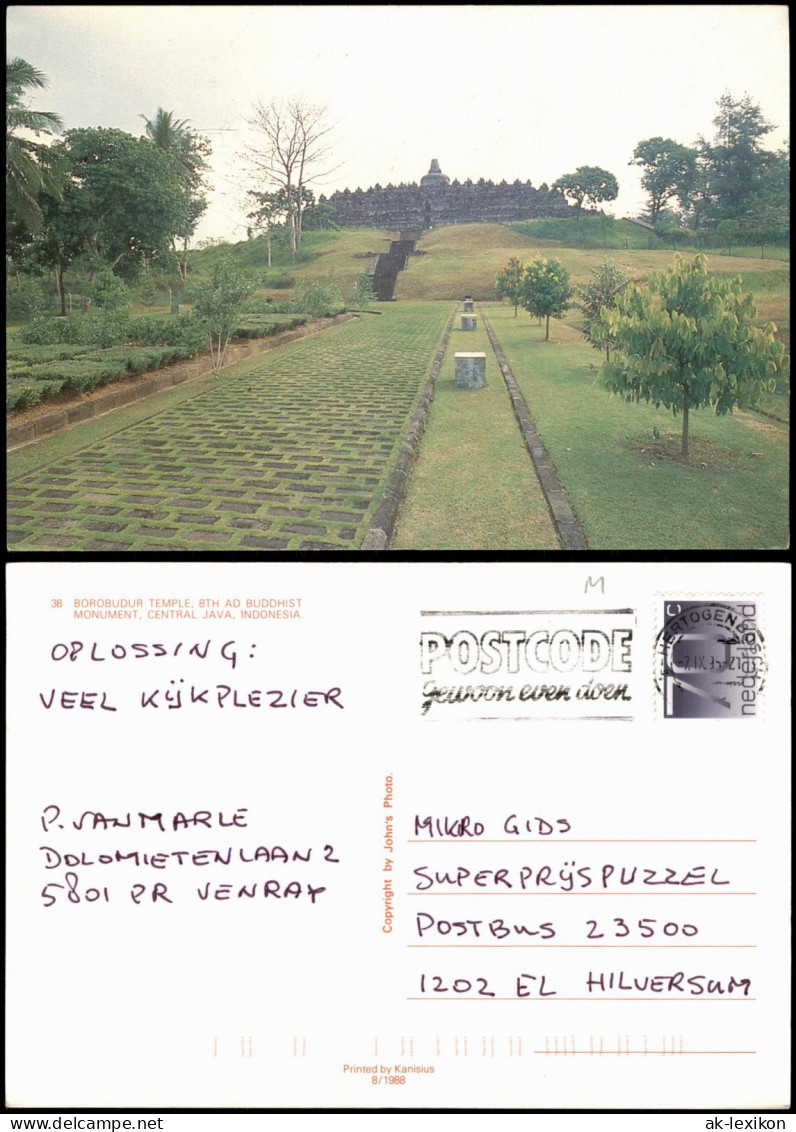 38 BOROBUDUR TEMPLE, 8TH AD BUDDHIST
MONUMENT, CENTRAL JAVA, INDONESIA.
OPLOSSING:
VEEL KIJKPLEZIER
P. VAN MARLE
DOLOMIETENLAAN 2
5801 PR VENRAY
M
POSTCODE
gewoon even doen
70c
nederland
Copyright by John's Photo.
MIKRO GIDS
SUPERPRIJSPUZZEL
POSTBUS 23500
1202 EL HILVERSUM
Printed by Kanisius
8/1988
ak-lexikon ak-lexikon.com